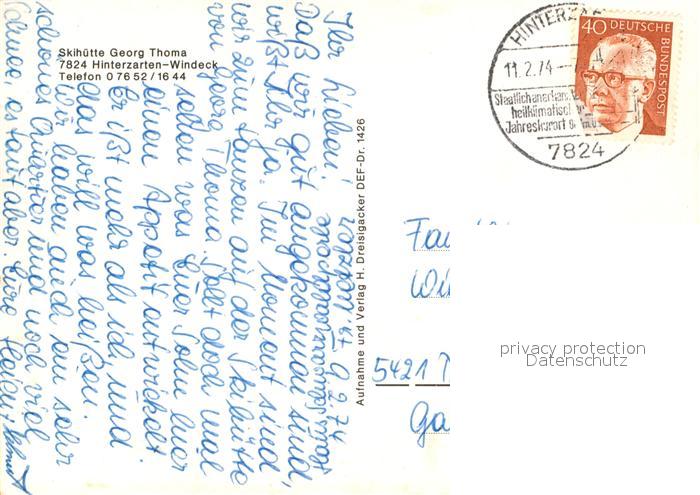 Skihütte Georg Thoma
7824 Hinterzarten-Windeck
Telefon 0 76 52 / 16 44
HINTERZAR
11.2.74
Staatlich anerkan
heilklimatisch
Jahreskurort
7824
40 DEUTSCHE
BUNDESPOST
9.2.74
Ihr Lieben!
Daß wir gut angekommen sind,
wißt Ihr ja. Im Moment sind
wir zum tanzen auf der Skihütte
von Georg Thoma. Sollt doch mal
sehen was Euer Sohn hier
einen Appetit entwickelt
Er ißt mehr als ich, und
das will was heißen.
Wir haben auch ein sehr
schönes Quartier und noch viel
Schnee, es taut aber. Eure
Aufnahme und Verlag H. Dreisigacker DEF-Dr. 1426
Fa
Wi
5421
Ga
privacy protection
Datenschutz